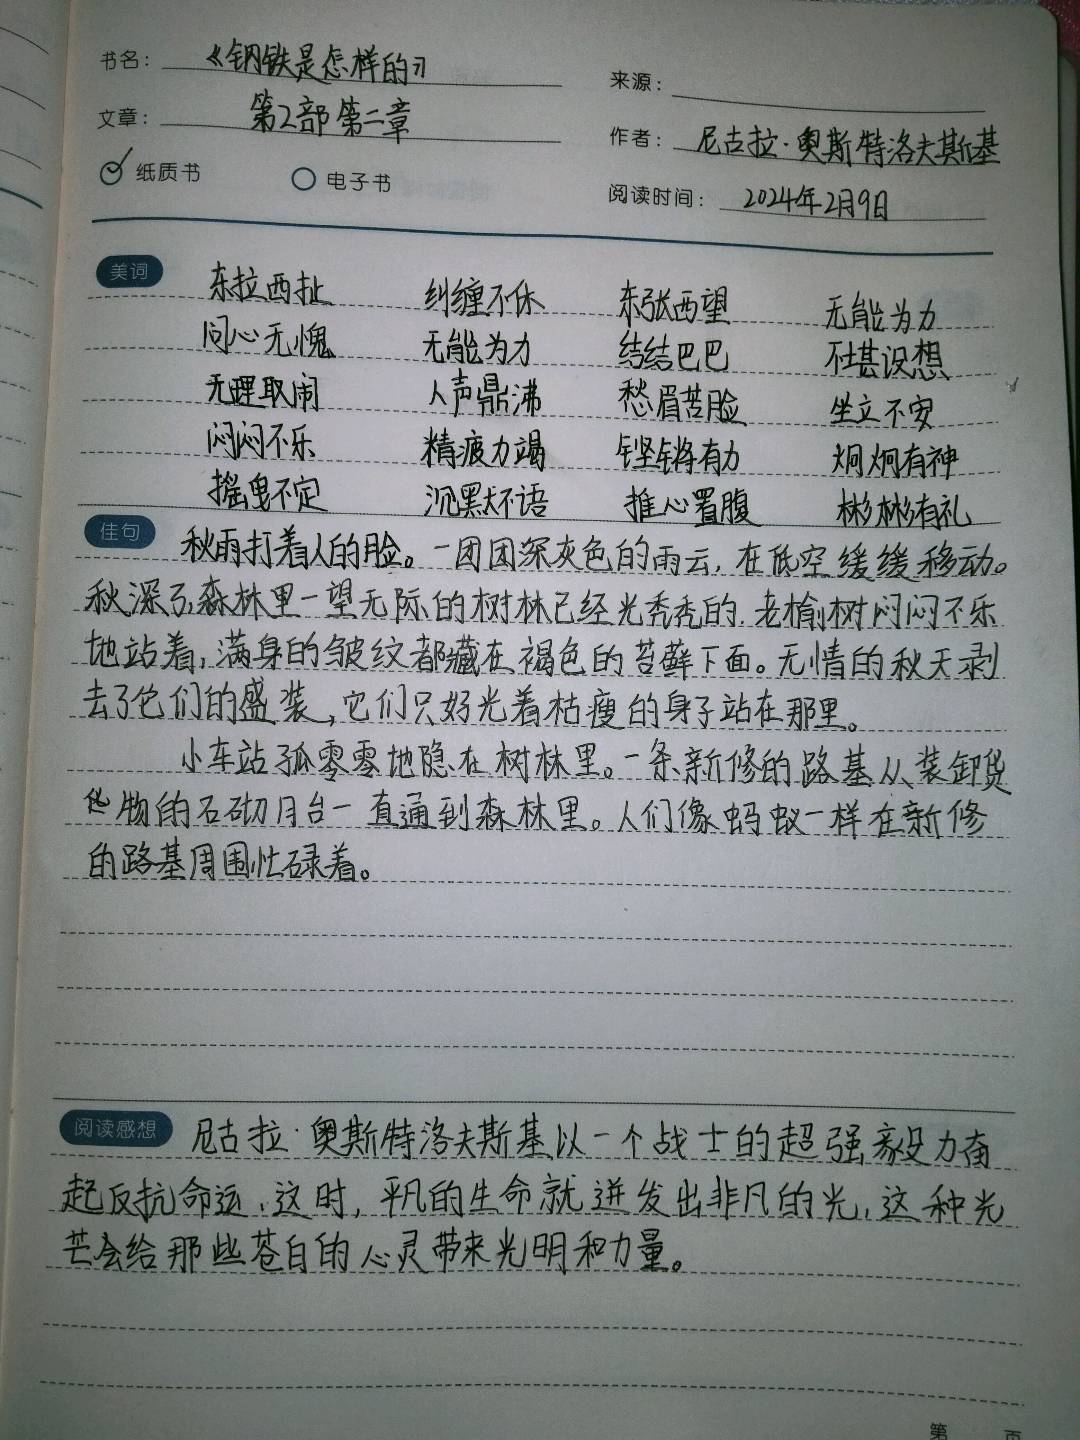 书名： 《钢铁是怎样的》
来源：
文章： 第2部第二章
作者： 尼古拉·奥斯特洛夫斯基
纸质书 电子书
阅读时间： 2024年2月9日
美词 东拉西扯 纠缠不休 东张西望 无能为力
问心无愧 无能为力 结结巴巴 不堪设想
无理取闹 人声鼎沸 愁眉苦脸 坐立不安
闷闷不乐 精疲力竭 铿锵有力 炯炯有神
摇曳不定 沉默不语 推心置腹 彬彬有礼
佳句 秋雨打着人的脸。一团团深灰色的雨云，在低空缓缓移动。
秋深了，森林里一望无际的树林已经光秃秃的，老榆树闷闷不乐
地站着，满身的皱纹都藏在褐色的苔藓下面。无情的秋天剥
去了它们的盛装，它们只好光着枯瘦的身子站在那里。
小车站孤零零地隐在树林里。一条新修的路基从装卸货
物的石砌月台一直通到森林里。人们像蚂蚁一样在新修
的路基周围忙碌着。
阅读感想 尼古拉·奥斯特洛夫斯基以一个战士的超强毅力奋
起反抗命运，这时，平凡的生命就迸发出非凡的光，这种光
芒会给那些苍白的心灵带来光明和力量。
第 页